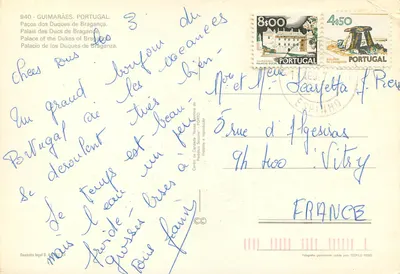 840 - GUIMARÃES, PORTUGAL
Paços dos Duques de Bragança
Palais des Ducs de Bragança
Palace of the Dukes of Bragança
Palacio de los Duques de Braganza
Chers tous les 3
Un grand bonjour du
Portugal où les vacances
se déroulent très bien.
Le temps est beau
mais l'eau un peu
froide.
grosses bises à
tous
8$00
PORTUGAL
4$50
PORTUGAL
et Mme
5 rue d'Algesiras
94400 Vitry
FRANCE